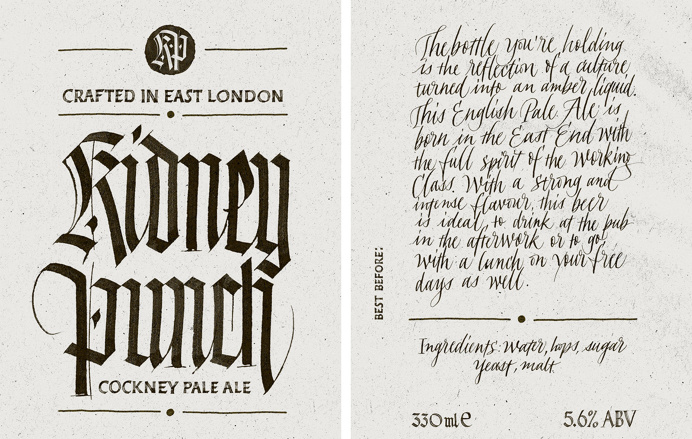 KP
CRAFTED IN EAST LONDON
Kidney
punch
COCKNEY PALE ALE
The bottle you're holding
is the reflection of a culture
turned into an amber liquid.
This English Pale Ale is
born in the East End with
the full spirit of the Working
Class. With a strong and
intense flavour, this beer
is ideal, to drink at the pub
in the afterwork or to go,
with a lunch on your free
days as well.
BEST BEFORE:
Ingredients: Water, hops, sugar
yeast, malt.
330 ml e
5.6% ABV